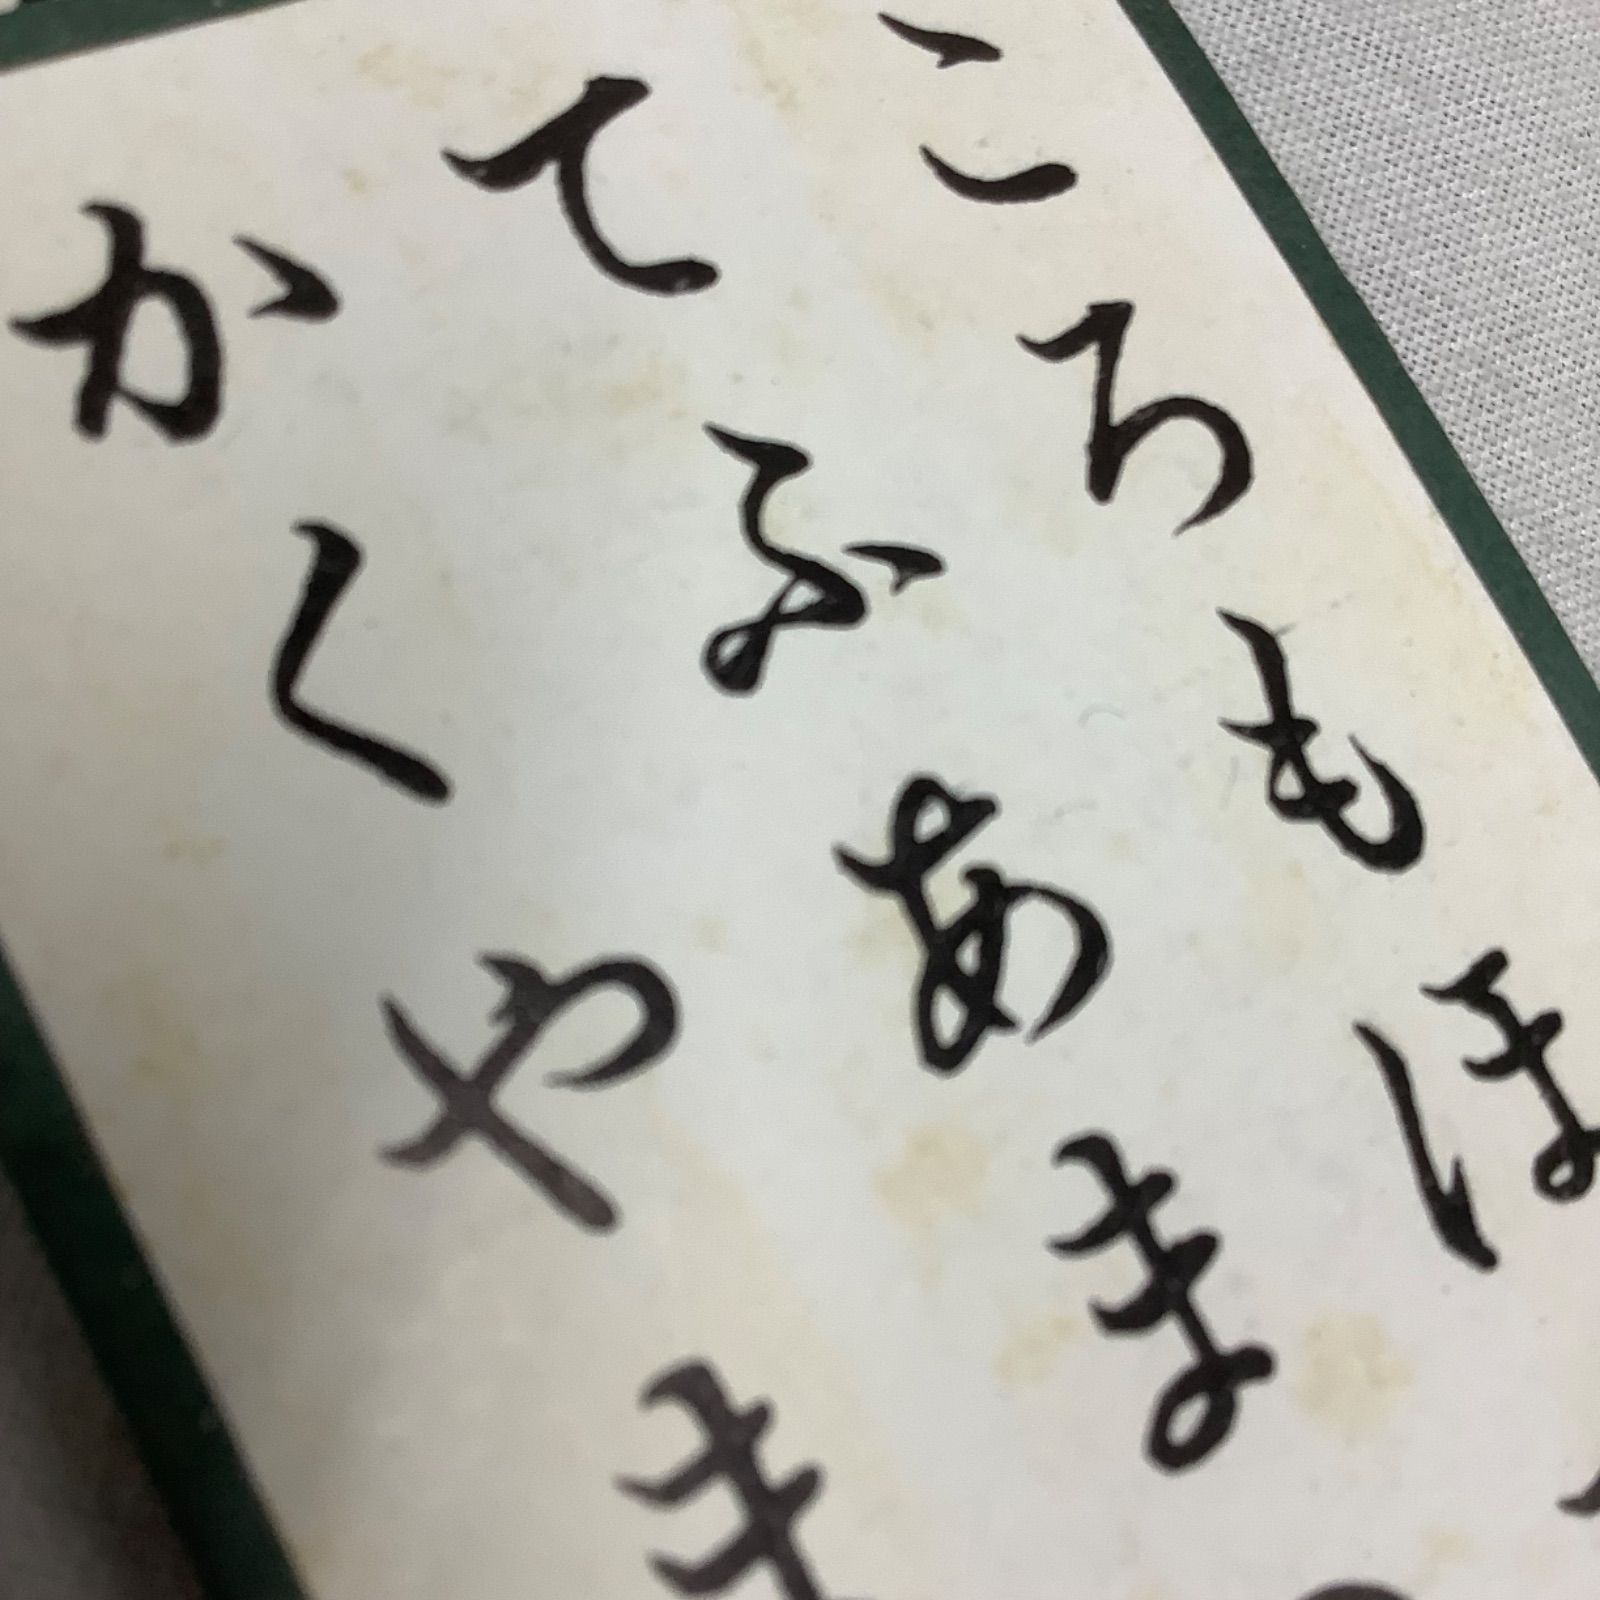 ころもほ
てふあま
かくやま